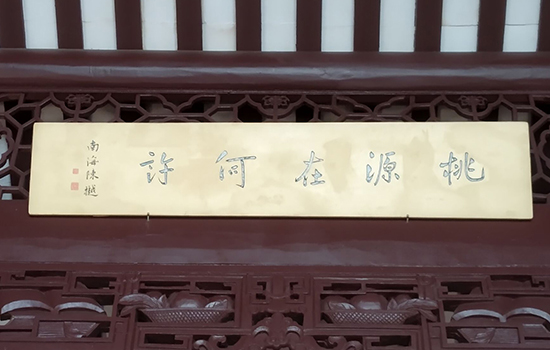 桃源在何許
南海陳樾